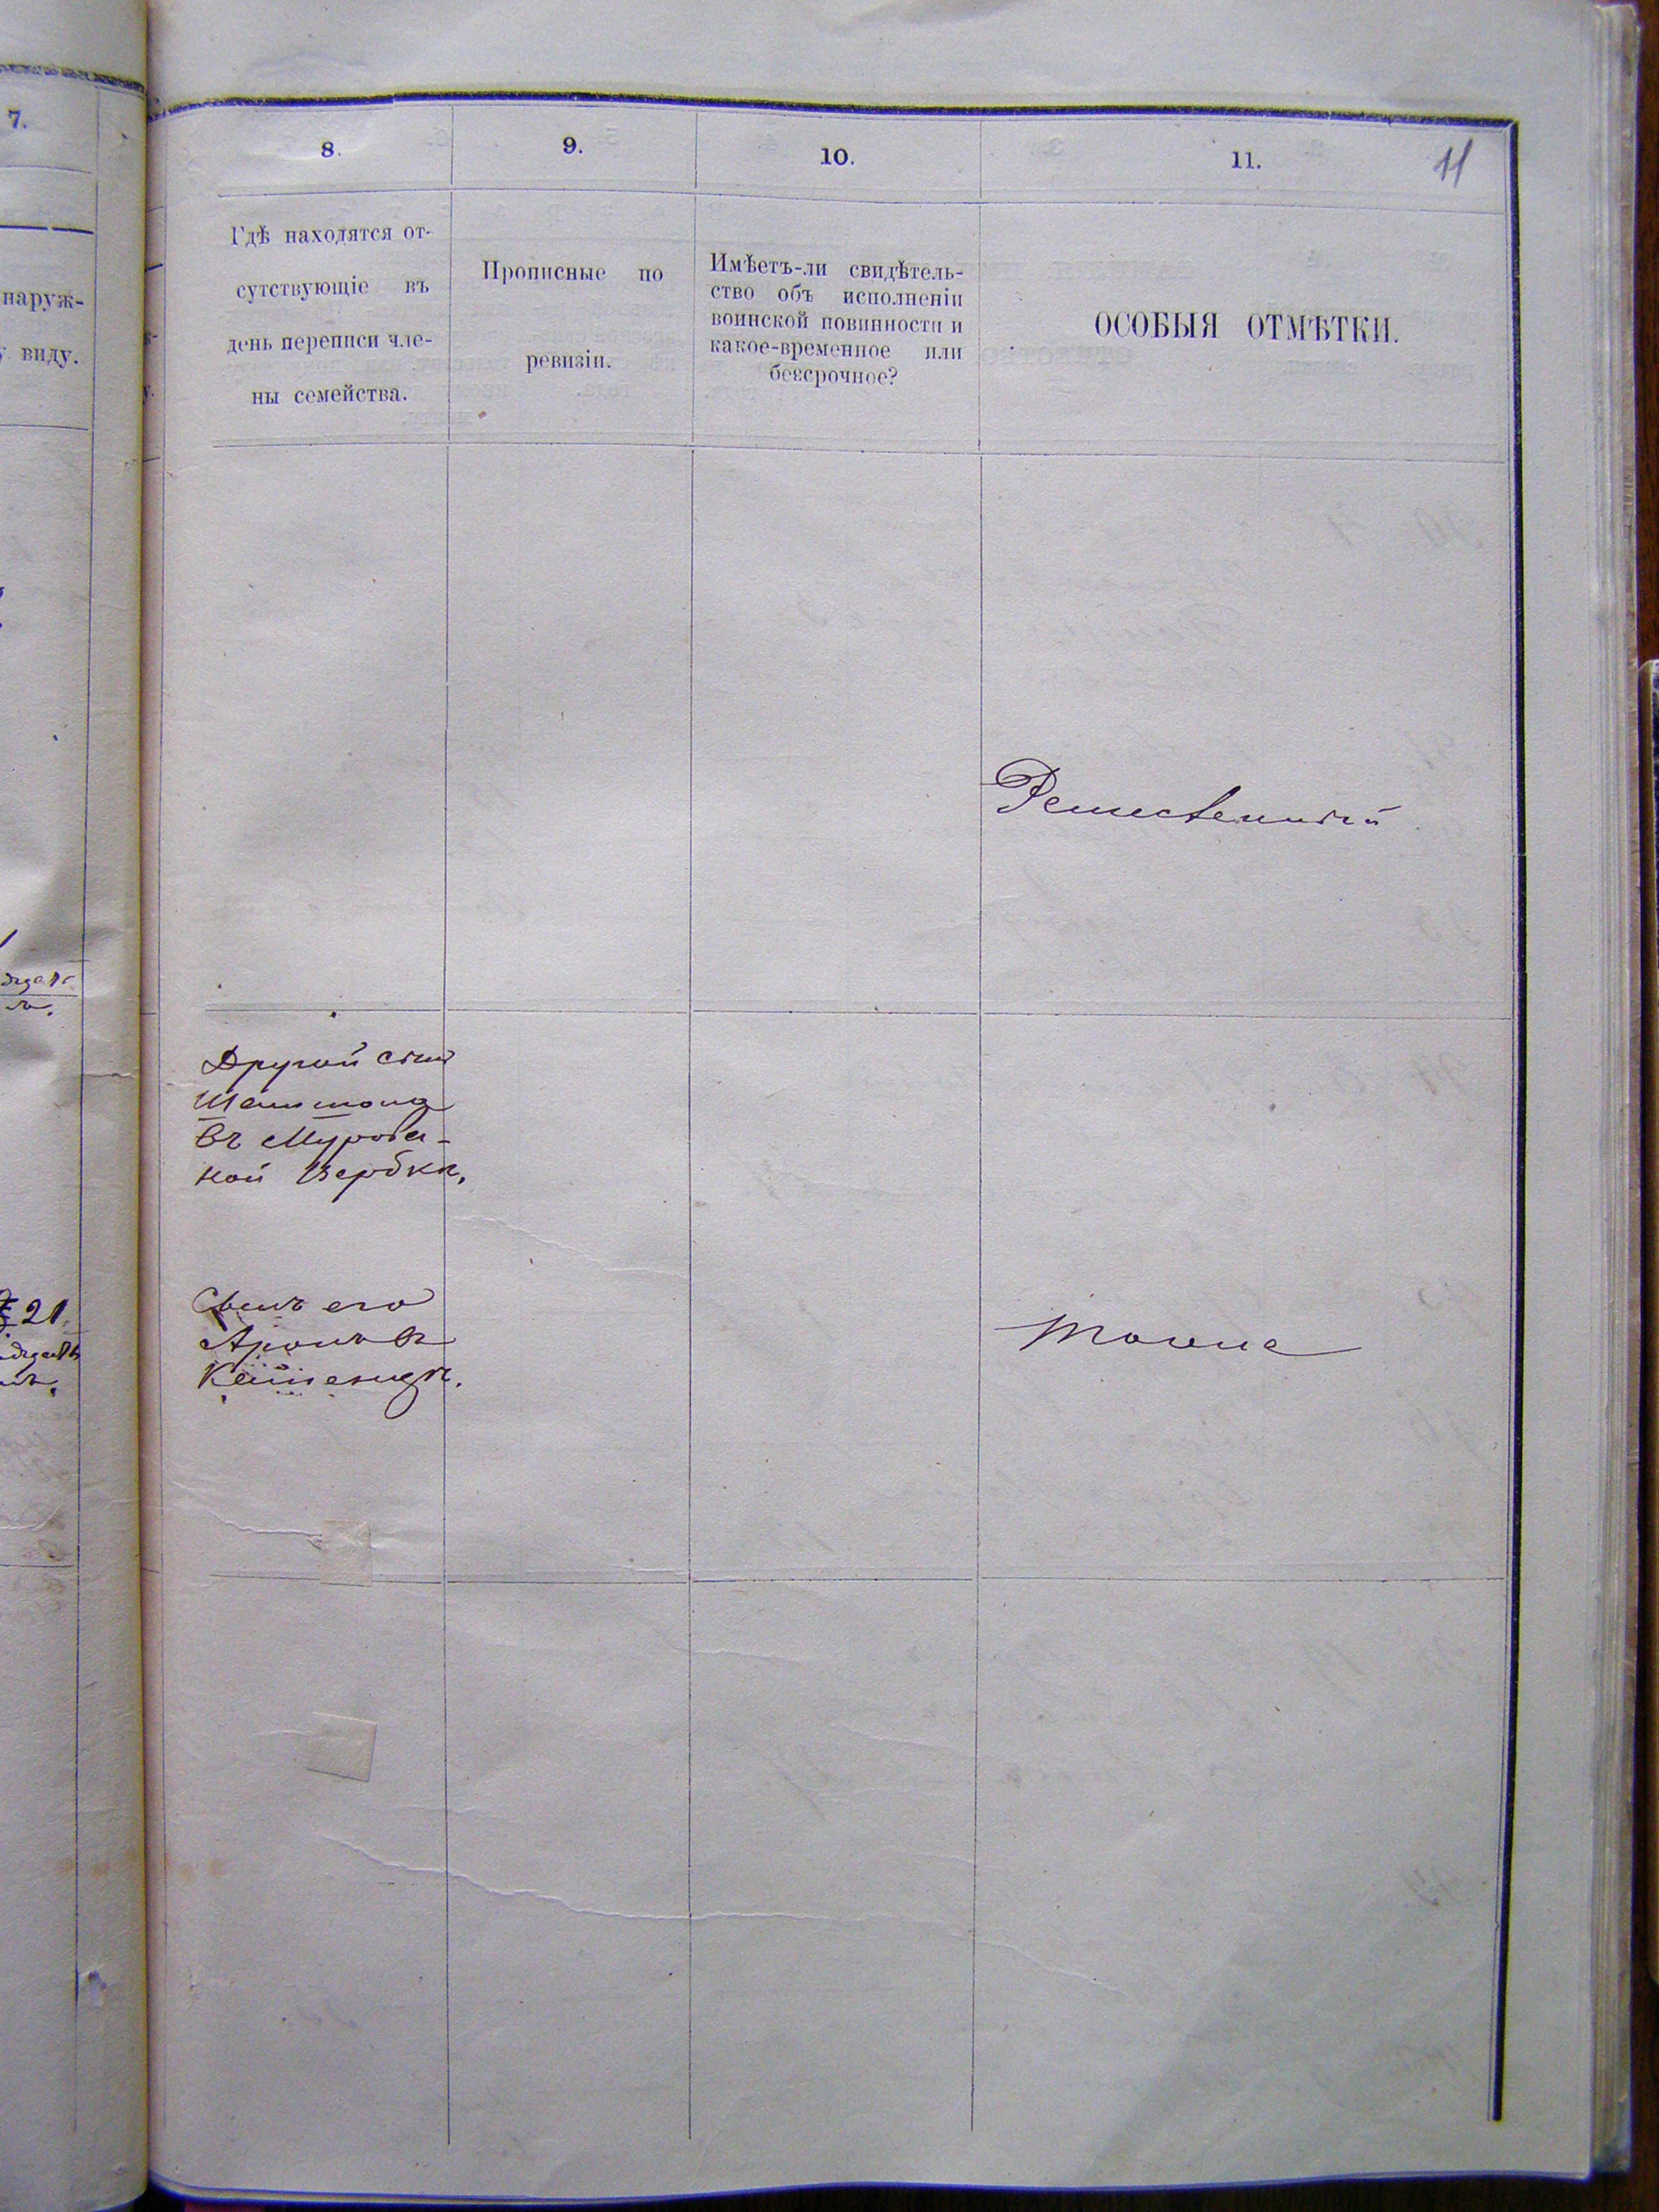 7.
8.
9.
10.
11.
11
наруж-
виду.
Гдѣ находятся от-
сутствующіе въ
день переписи чле-
ны семейства.
Прописные по
ревизіи.
Имѣетъ-ли свидѣтель-
ство объ исполненіи
воинской повинности и
какое-временное или
безсрочное?
ОСОБЫЯ ОТМѢТКИ.
Ремесленный
Другой сынъ
въ Мурова-
ной Вербки,
21
Сынъ его
Аронъ въ
тоже